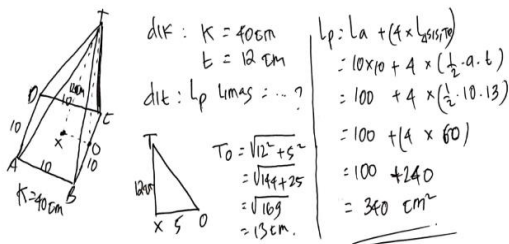 T
D
12cm
10
10
C
X
O
10
A
10
B
K=40cm
dik: K = 40cm
t = 12 cm
dit: Lp limas = ... ?
T
12cm
X 5 O
TO = √12² + 5²
= √144+25
= √169
= 13 cm.
Lp: La + (4 × L sisi TO)
= 10×10 + 4 × (1/2 · a · t)
= 100 + 4 × (1/2 · 10 · 13)
= 100 + (4 × 60)
= 100 + 240
= 340 cm²